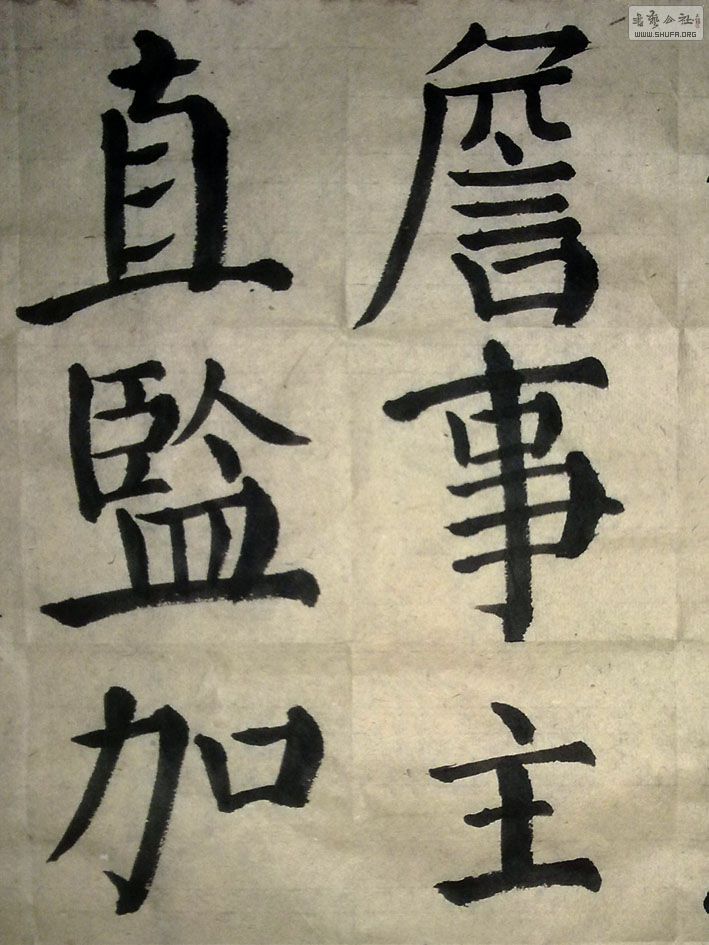 詹事主
直監加
書藝公社
WWW.SHUFA.ORG